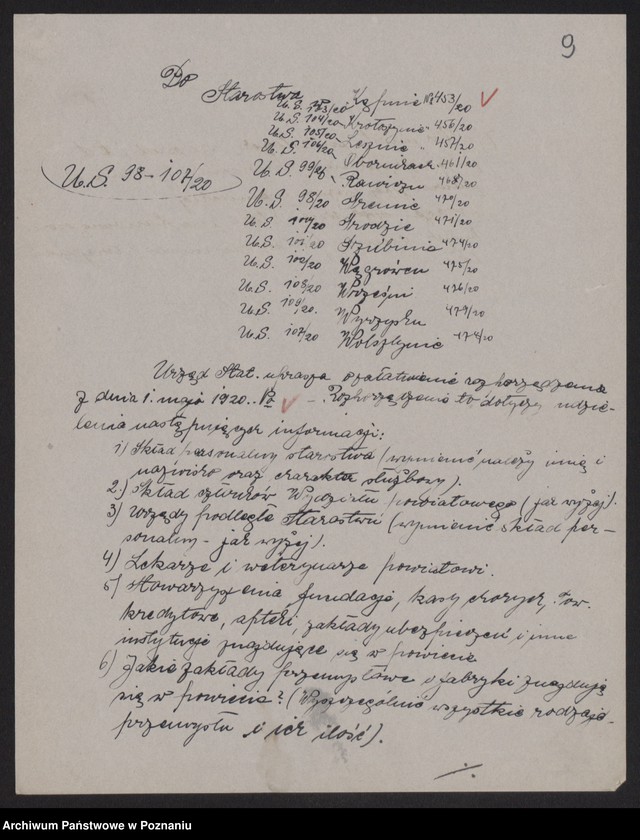 9
Do
Starostwa
U.S. 103/20 Kępnie № 453/20
U.S. 104/20 Krotoszynie " 456/20
U.S. 105/20 Lesznie " 457/20
U.S. 106/20 Obornikach 461/20
U.S. 98-107/20
U.S. 99/20 Rawiczu 468/20
U.S. 98/20 Śremie 470/20
U.S. 100/20 Środzie 471/20
U.S. 101/20 Szubinie 474/20
U.S. 102/20 Wągrówcu 475/20
U.S. 108/20 Wrześni 476/20
U.S. 109/20. Wyrzysku 479/20
U.S. 107/20 Wolsztynie 478/20
Urząd Stat. uprasza o załatwienie rozporządzenia
z dnia 1. maja 1920. – Rozporządzenie to dotyczy udzie-
lenia następujących informacji:
1) Skład personalny starostwa (wymienić należy imię i
nazwisko oraz charakter służbowy).
2.) Skład członków Wydziału powiatowego (jak wyżej).
3) Urzędy podległe Starostwu (wymienić skład per-
sonalny - jak wyżej).
4) Lekarze i weterynarze powiatowi.
5) Stowarzyszenia, fundacje, kasy chorych, Tow.
kredytowe, apteki, zakłady ubezpieczeń i inne
instytucje znajdujące się w powiecie
6) Jakie zakłady przemysłowe i fabryki znajdują
się w powiecie? (Wyszczególnić wszystkie rodzaje
przemysłu i ich ilość).
Archiwum Państwowe w Poznaniu